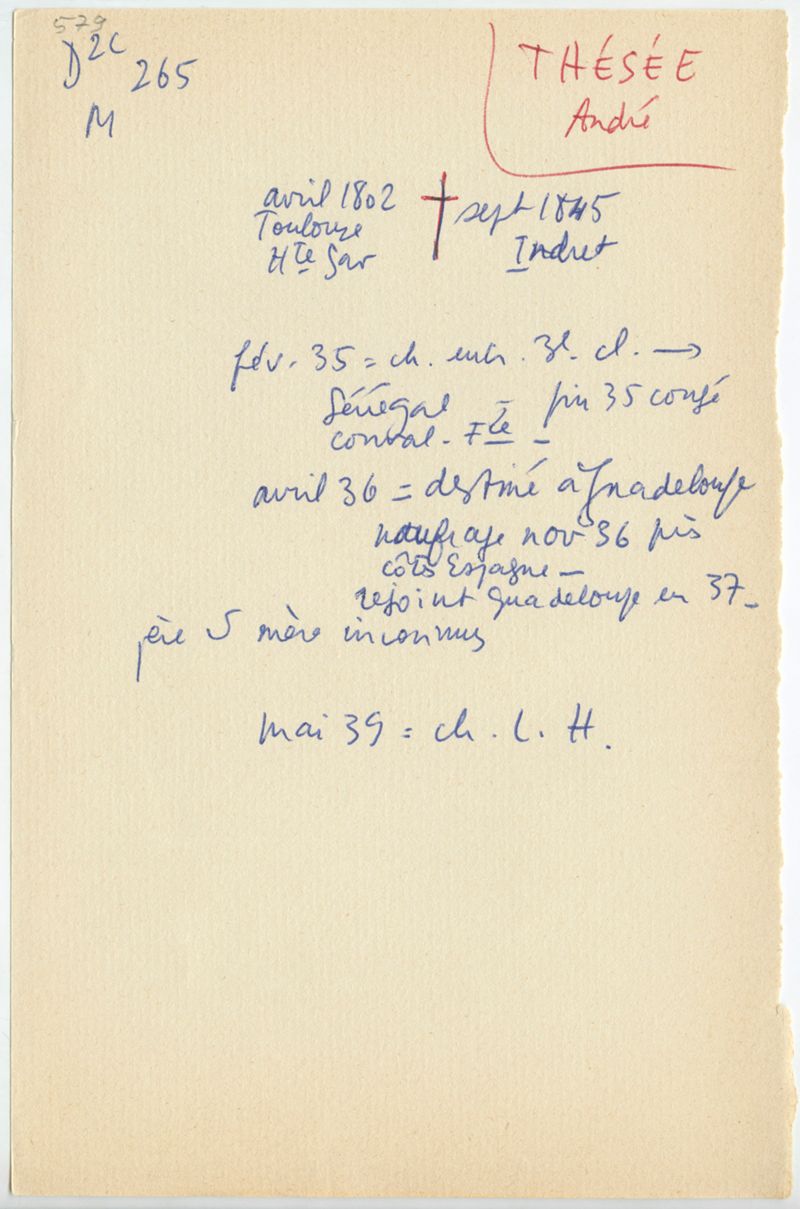 579
D2c
265
M
THÉSÉE
André
avril 1802
Toulouse
Hte Gar
sept 1845
Indret
fév. 35 = ch. entr. 3e. cl. →
Sénégal – fin 35 congé
conval. –
avril 36 = destiné à Guadeloupe
naufrage nov 36 près
côtes Espagne –
rejoint Guadeloupe en 37 –
père mère inconnus
mai 39 = ch. L. H.